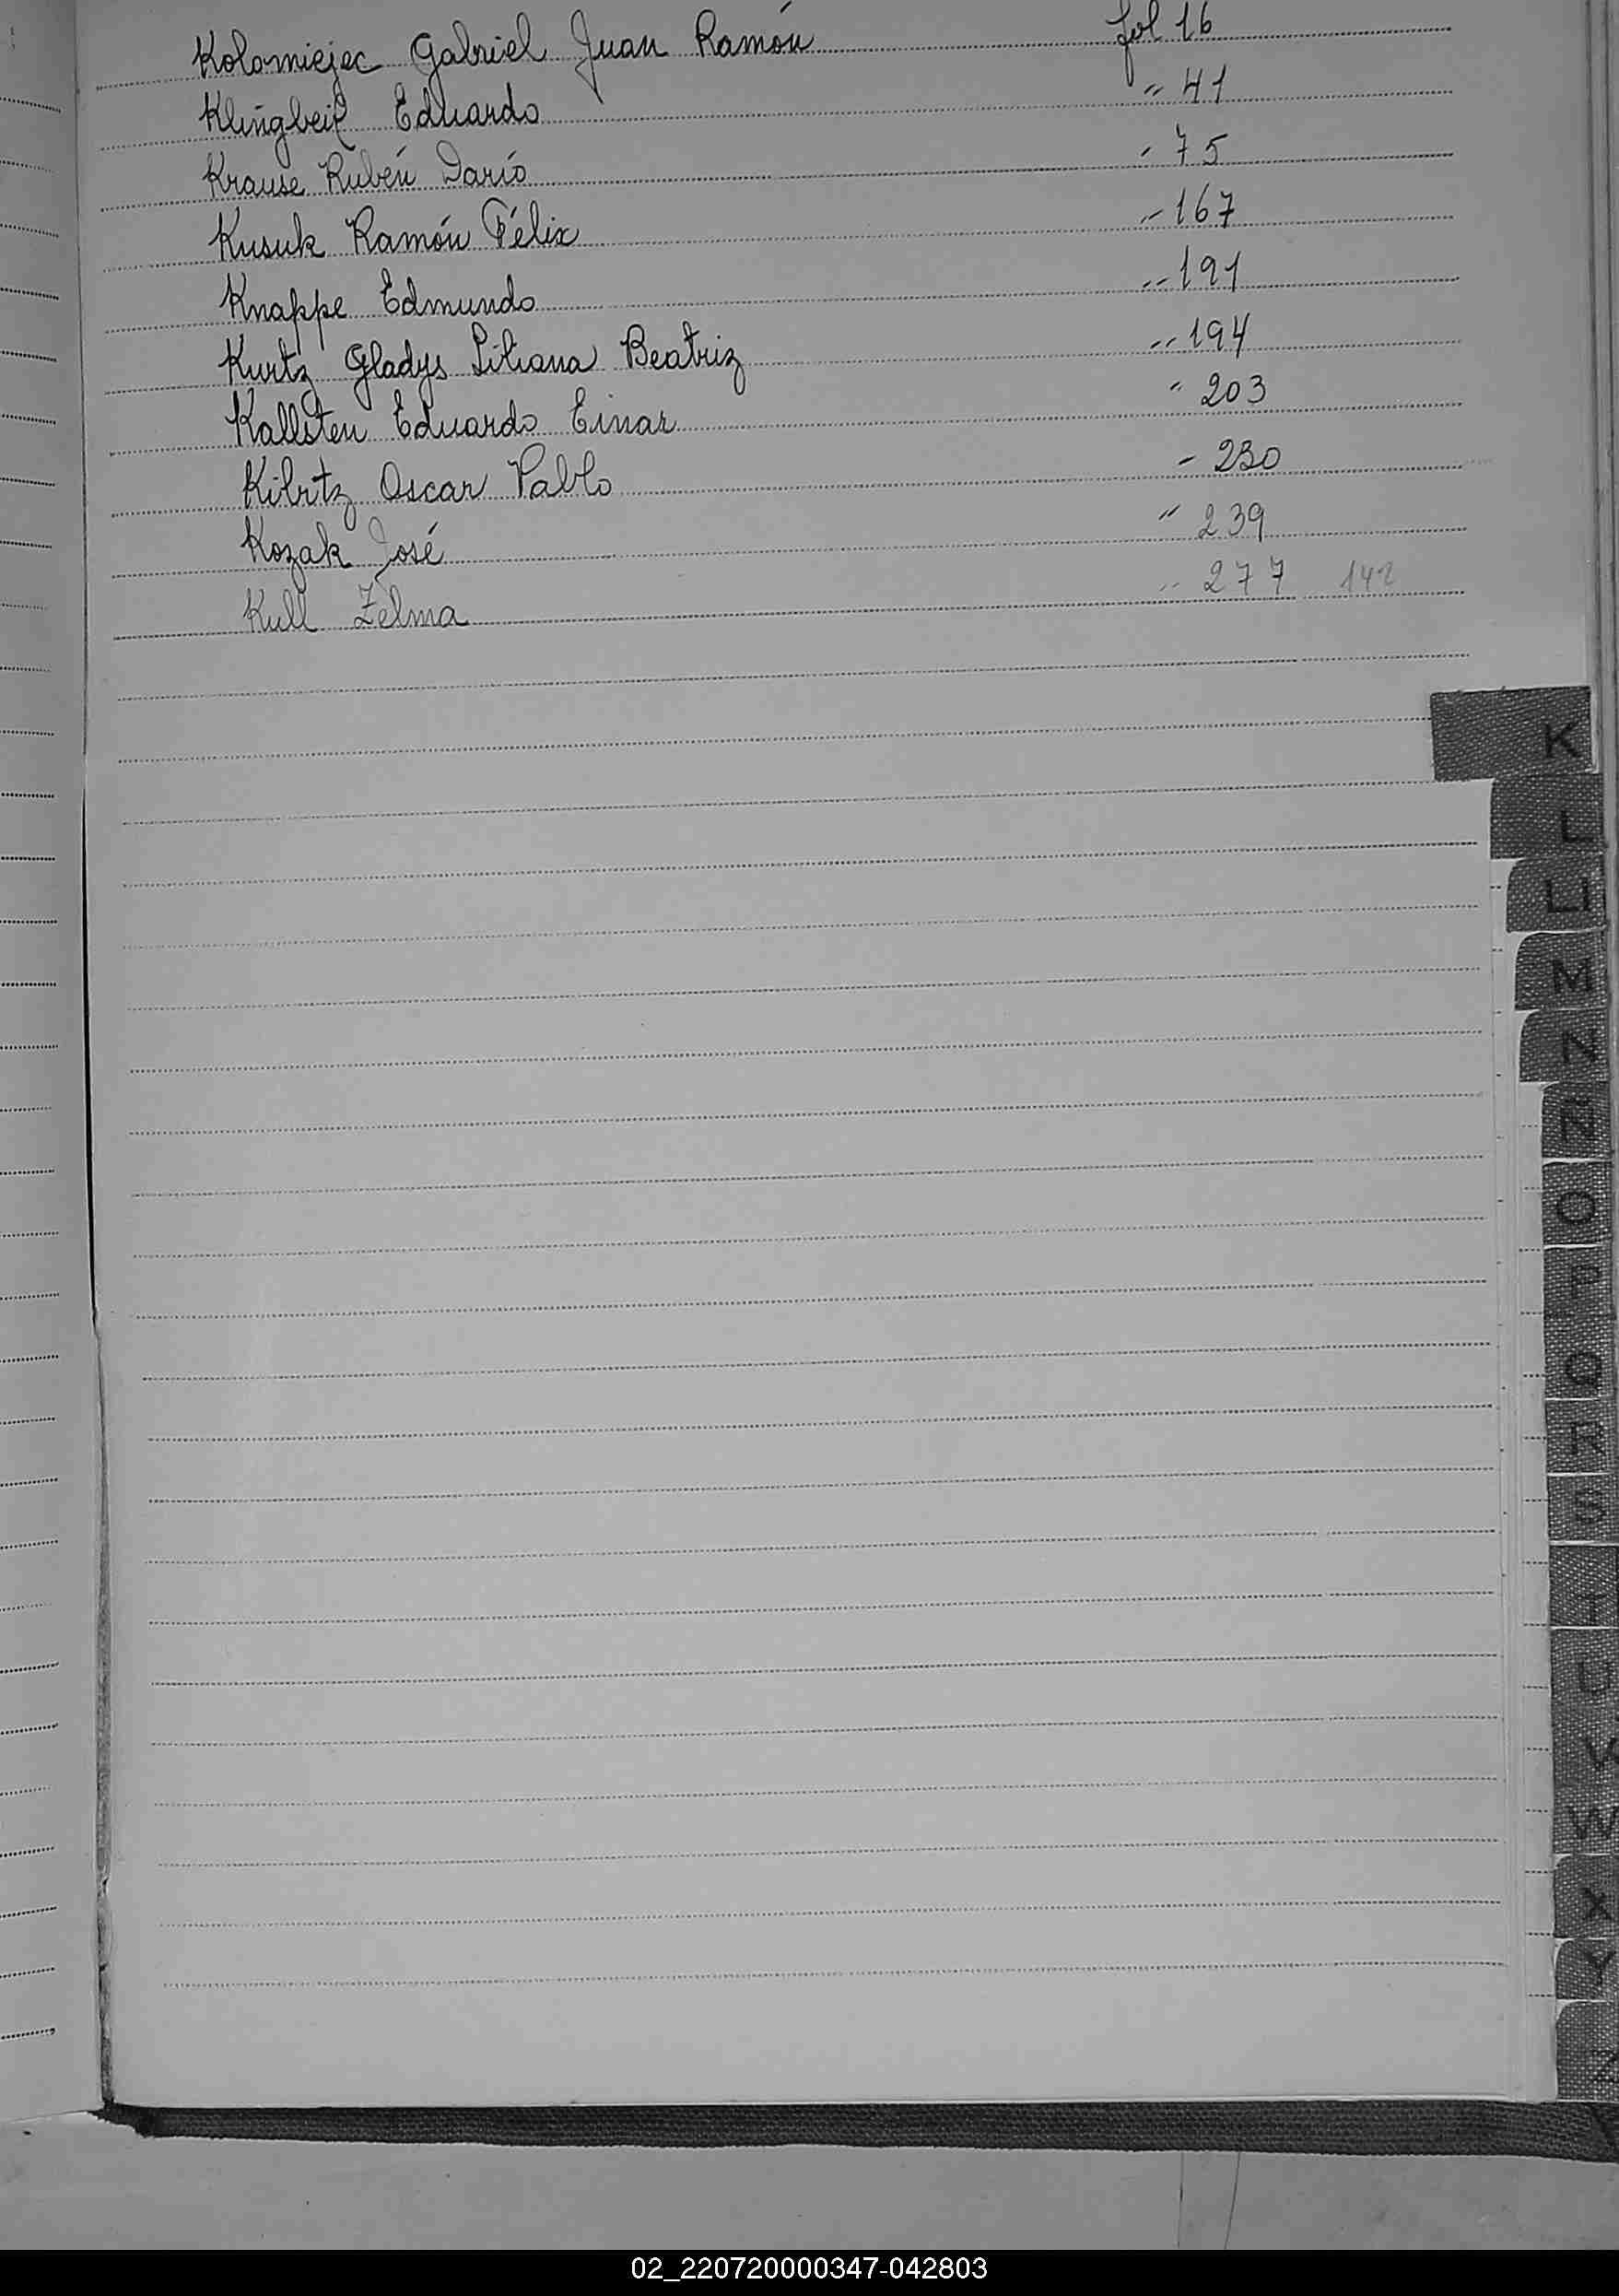 Kolomiejec Gabriel Juan Ramón fol 16
Klingbeil Eduardo " 41
Krause Rubén Darío " 75
Kusuk Ramón Félix " 167
Knappe Edmundo " 191
Kurtz Gladys Liliana Beatriz " 194
Kallsten Eduardo Einar " 203
Kibitz Oscar Pablo " 230
Kozak José " 239
Kull Zelma " 277 142
K
L
LL
M
N
Ñ
O
P
Q
R
S
T
U
V
W
X
Y
Z
02_220720000347-042803